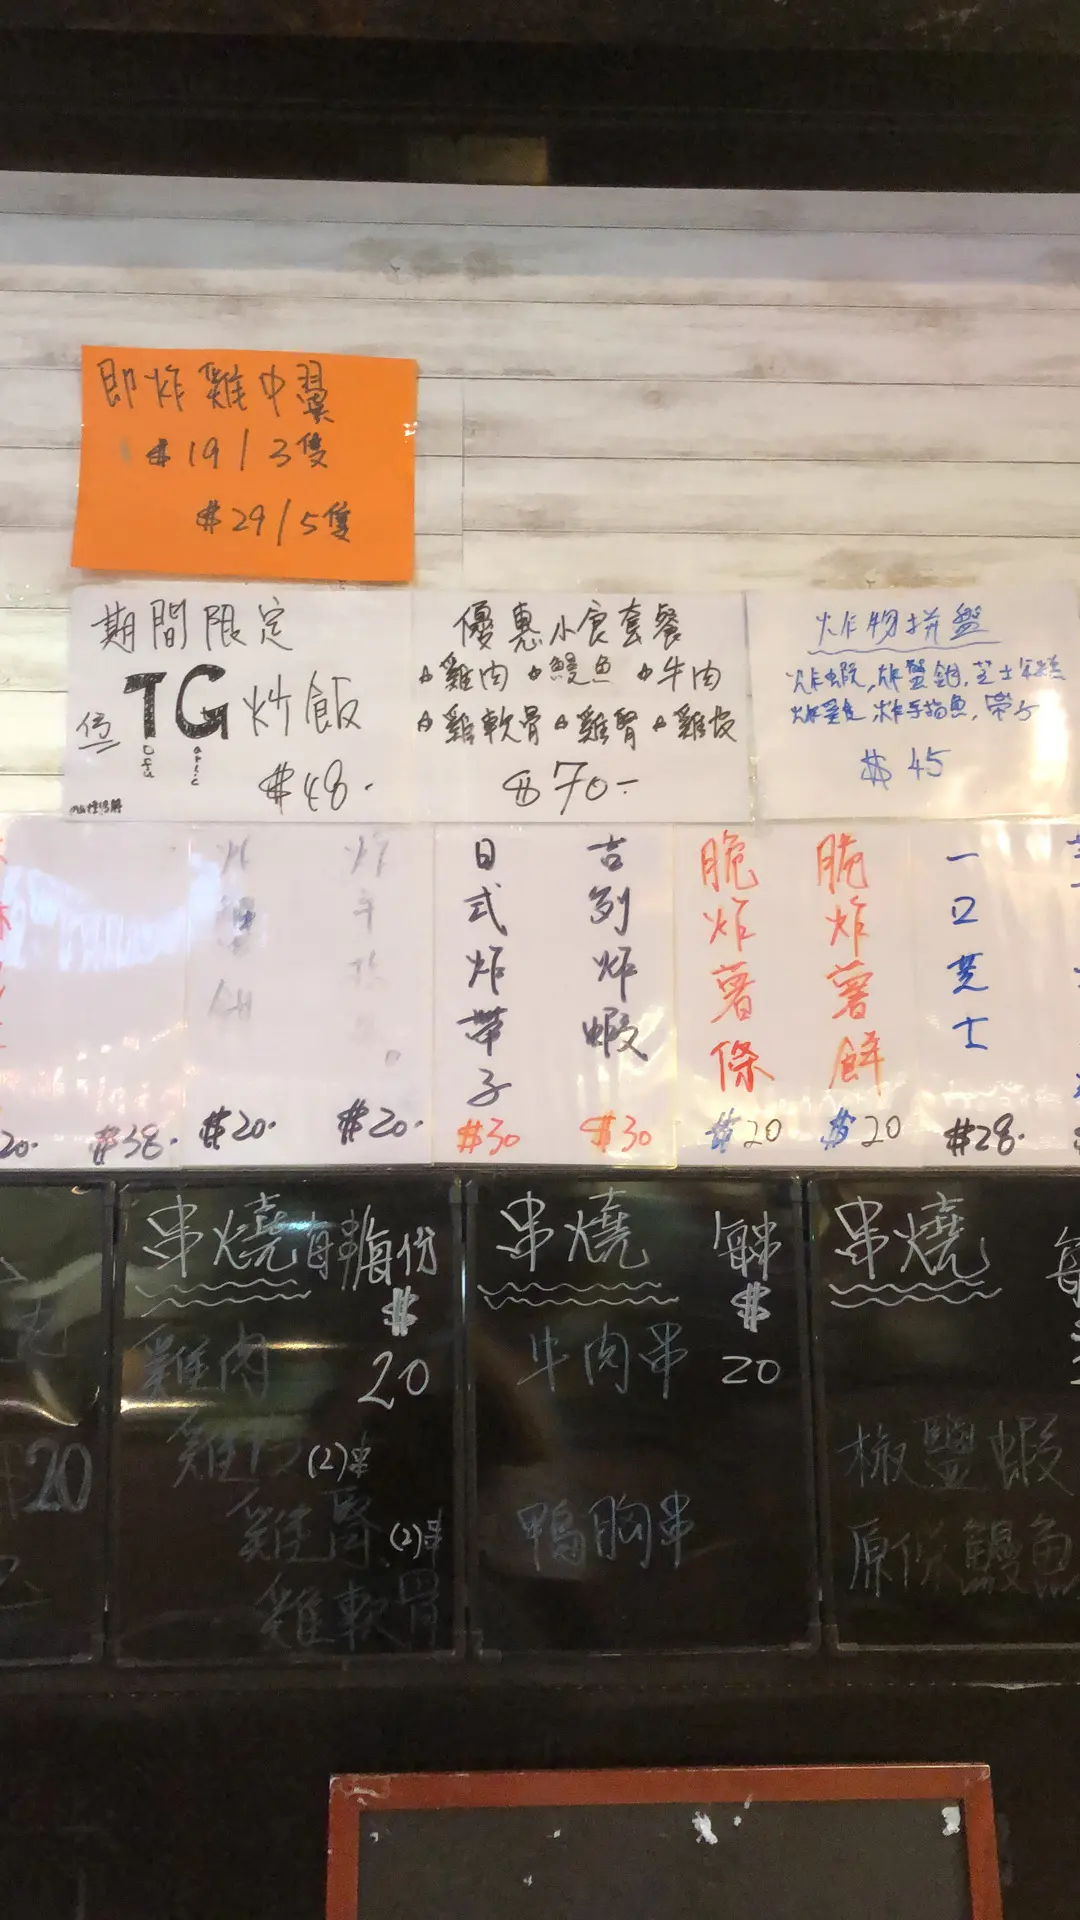 即炸雞中翼
$19/3隻
$29/5隻
期間限定
TG炒飯
ofu
arlic
$48.
優惠小食套餐
雞肉 鰻魚 牛肉
雞軟骨 雞腎 雞皮
$70-
炸物拼盤
炸蝦,炸蟹鉗,芝士年糕
炸薯餅,炸手指魚,帶子
$45
20.
$38.
炸蟹鉗
$20.
炸手指魚
$20.
日式炸帶子
$30
吉列炸蝦
$30
脆炸薯條
$20
脆炸薯餅
$20
一口芝士
$28.
$20
串燒 每串/每份
$
20
雞肉
(2)串
雞腎 (2)串
雞軟骨
串燒 每串
$
20
牛肉串
鴨胸串
串燒 每
椒鹽蝦
原條鰻魚